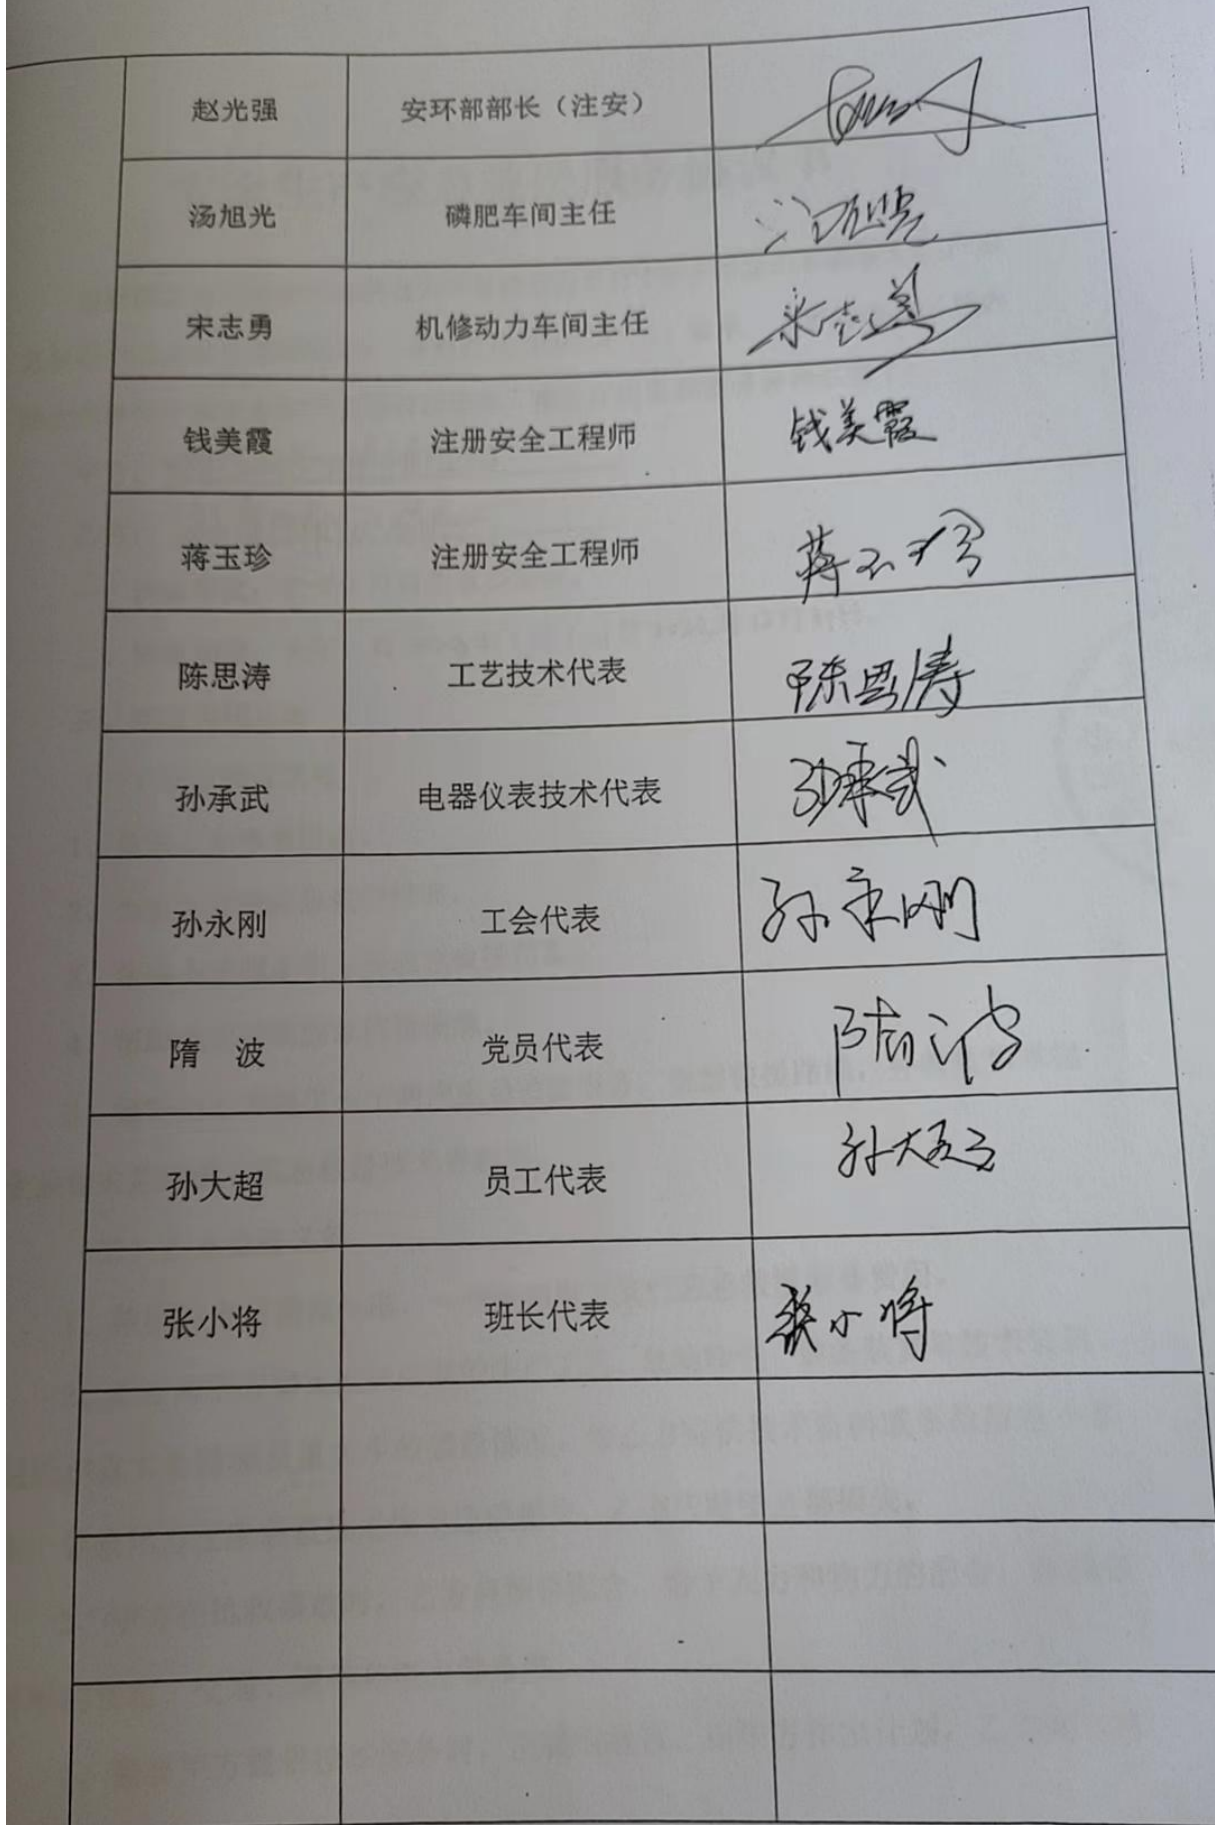 赵光强 安环部部长（注安）
汤旭光 磷肥车间主任 汤旭光
宋志勇 机修动力车间主任 宋志勇
钱美霞 注册安全工程师 钱美霞
蒋玉珍 注册安全工程师 蒋玉珍
陈思涛 工艺技术代表 陈思涛
孙承武 电器仪表技术代表 孙承武
孙永刚 工会代表 孙永刚
隋 波 党员代表 隋波
孙大超 员工代表 孙大超
张小将 班长代表 张小将